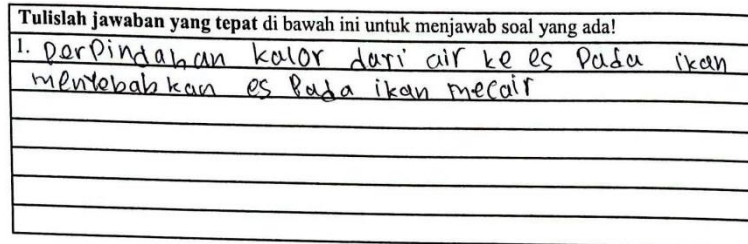 Tulislah jawaban yang tepat di bawah ini untuk menjawab soal yang ada!
1. Perpindahan kalor dari air ke es Pada ikan
menyebabkan es Pada ikan mecair